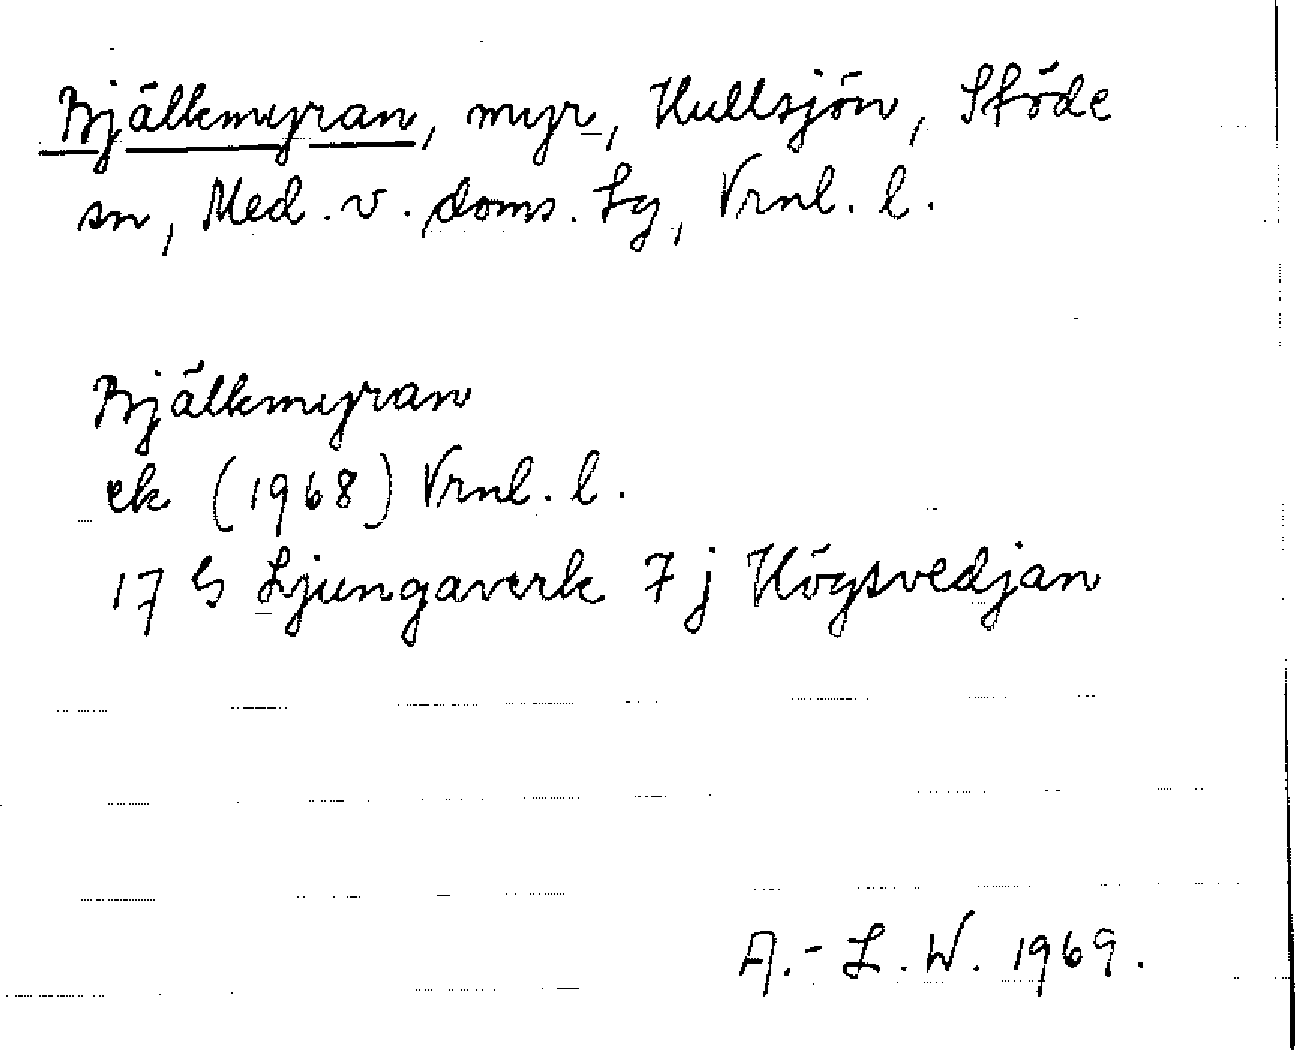 Bjälkmyran, myr, Kullsjön, Stöde
sn, Med. v. doms. Lg, Vrnl. l.
Bjälkmyran
ek (1968) Vrnl. l.
17 G Ljungaverk 7 j Högsvedjan
A.-L. W. 1969.